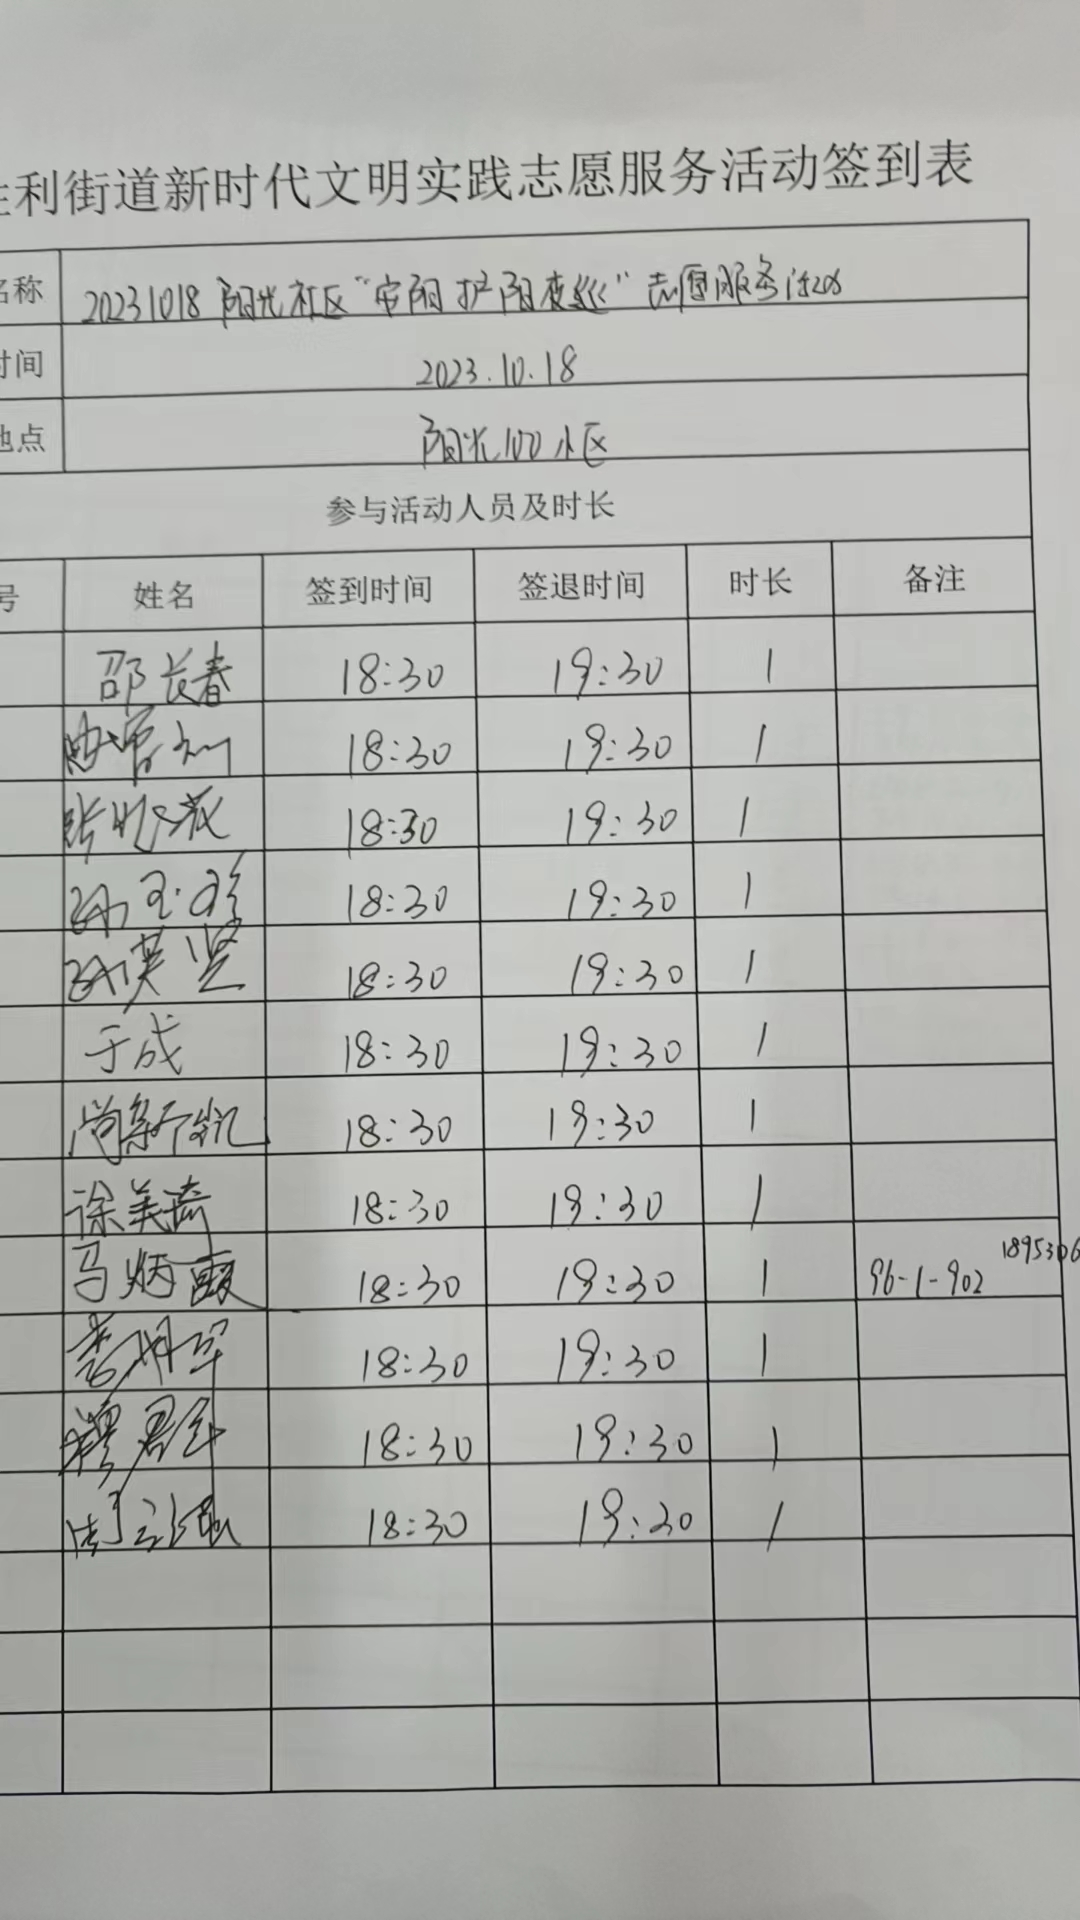 胜利街道新时代文明实践志愿服务活动签到表
名称 20231018 阳光社区“守阳护阳夜巡”志愿服务活动
时间 2023.10.18
地点 阳光100小区
参与活动人员及时长
号 姓名 签到时间 签退时间 时长 备注
邵长春 18:30 19:30 1
18:30 19:30 1
18:30 19:30 1
孙玉珍 18:30 19:30 1
孙英坚 18:30 19:30 1
于成 18:30 19:30 1
尚新凯 18:30 19:30 1
徐美琦 18:30 19:30 1
马炳霞 18:30 19:30 1 96-1-902 1895306
李明军 18:30 19:30 1
穆君 18:30 19:30 1
周 18:30 19:30 1